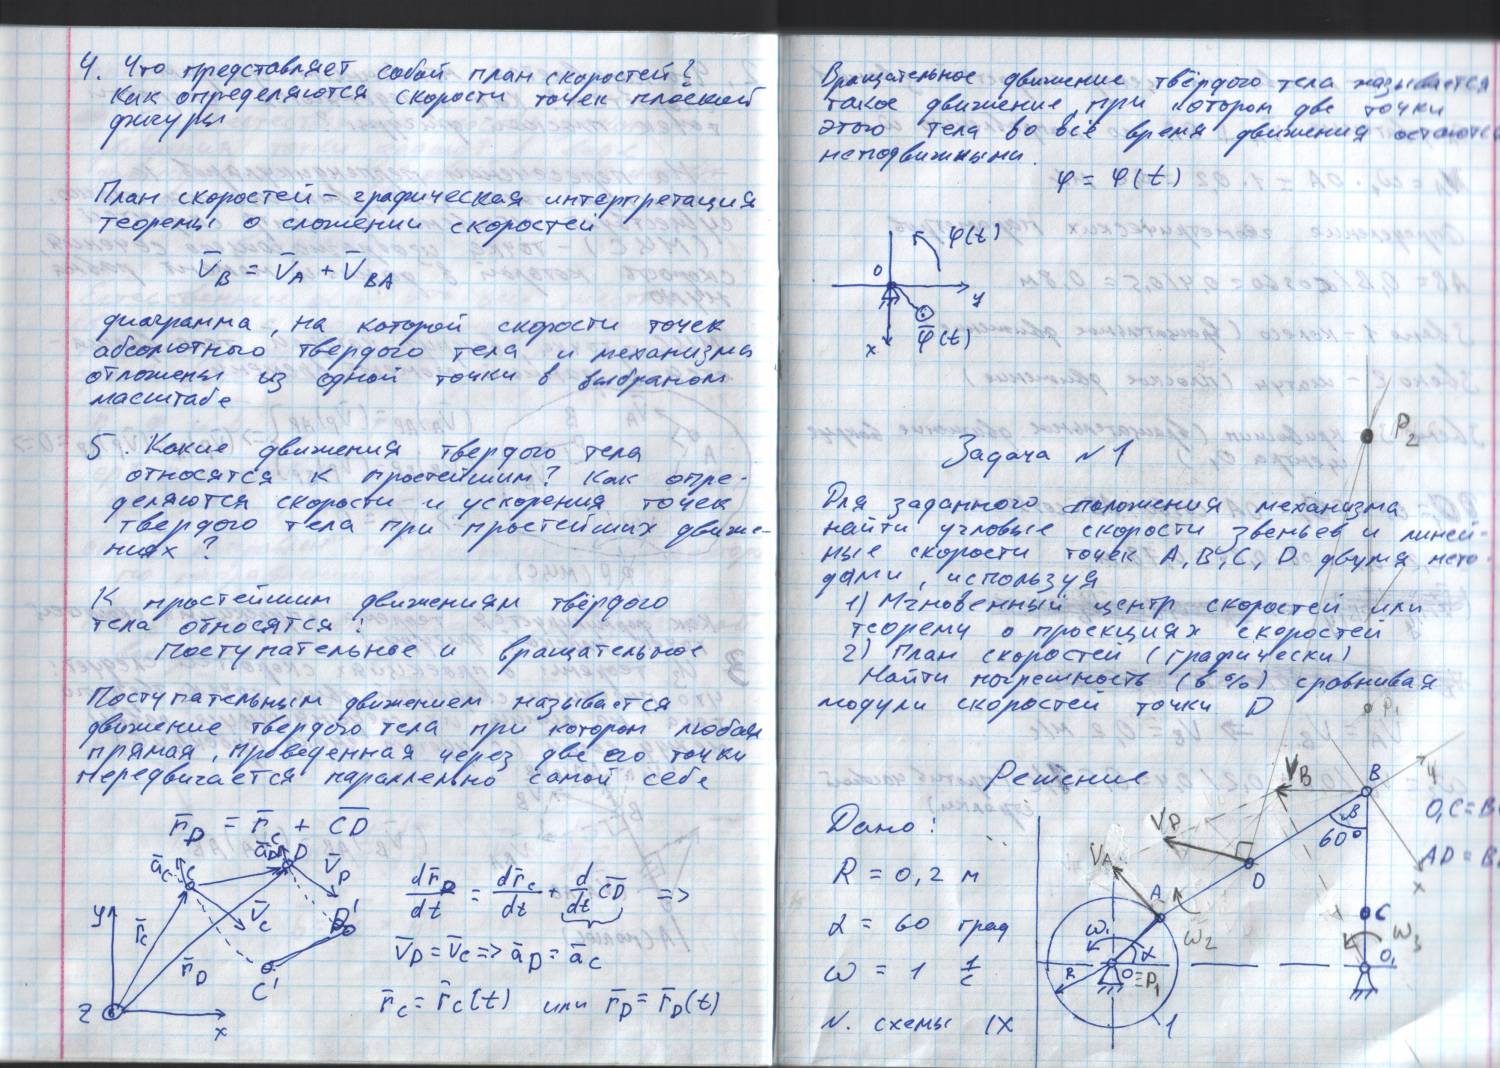 4. Что представляет собой план скоростей?
Как определяются скорости точек плоской
фигуры
План скоростей – графическая интерпретация
теоремы о сложении скоростей
V̄B = V̄A + V̄BA
диаграмма, на которой скорости точек
абсолютного твердого тела и механизма
отложены из одной точки в выбраном
масштабе
5. Какие движения твердого тела
относятся к простейшим? Как опре-
деляются скорости и ускорения точек
твердого тела при простейших движе-
ниях?
К простейшим движениям твёрдого
тела относятся:
Поступательное и вращательное
Поступательным движением называется
движение твердого тела при котором любая
прямая, проведенная через две его точки
передвигается параллельно самой себе
r̄D = r̄C + C̄D̄
āC C āD D V̄D
y r̄C V̄C D'
r̄D
C'
z x
dr̄D/dt = dr̄C/dt + d/dt C̄D̄ =>
V̄D = V̄C => āD = āC
r̄C = r̄C(t) или r̄D = r̄D(t)
Вращательное движение твёрдого тела называется
такое движение, при котором две точки
этого тела во всё время движения остаются
неподвижными.
φ = φ(t)
φ(t)
O
y
x φ̄(t)
P2
Задача N1
Для заданного положения механизма
найти угловые скорости звеньев и линей-
ные скорости точек A, B, C, D двумя мето-
дами, используя
1) Мгновенный центр скоростей или
теорему о проекциях скоростей
2) План скоростей (графически)
Найти погрешность (в %) сравнивая
модули скоростей точки D
P1
Решение
Дано:
R = 0,2 м
α = 60 град
ω = 1 1/с
N. схемы IX
VB B y
O1C = B
VD β
60°
AD = B
VA D x
A
ω1 ω2 C ω3
α
R O=P1 O1
1